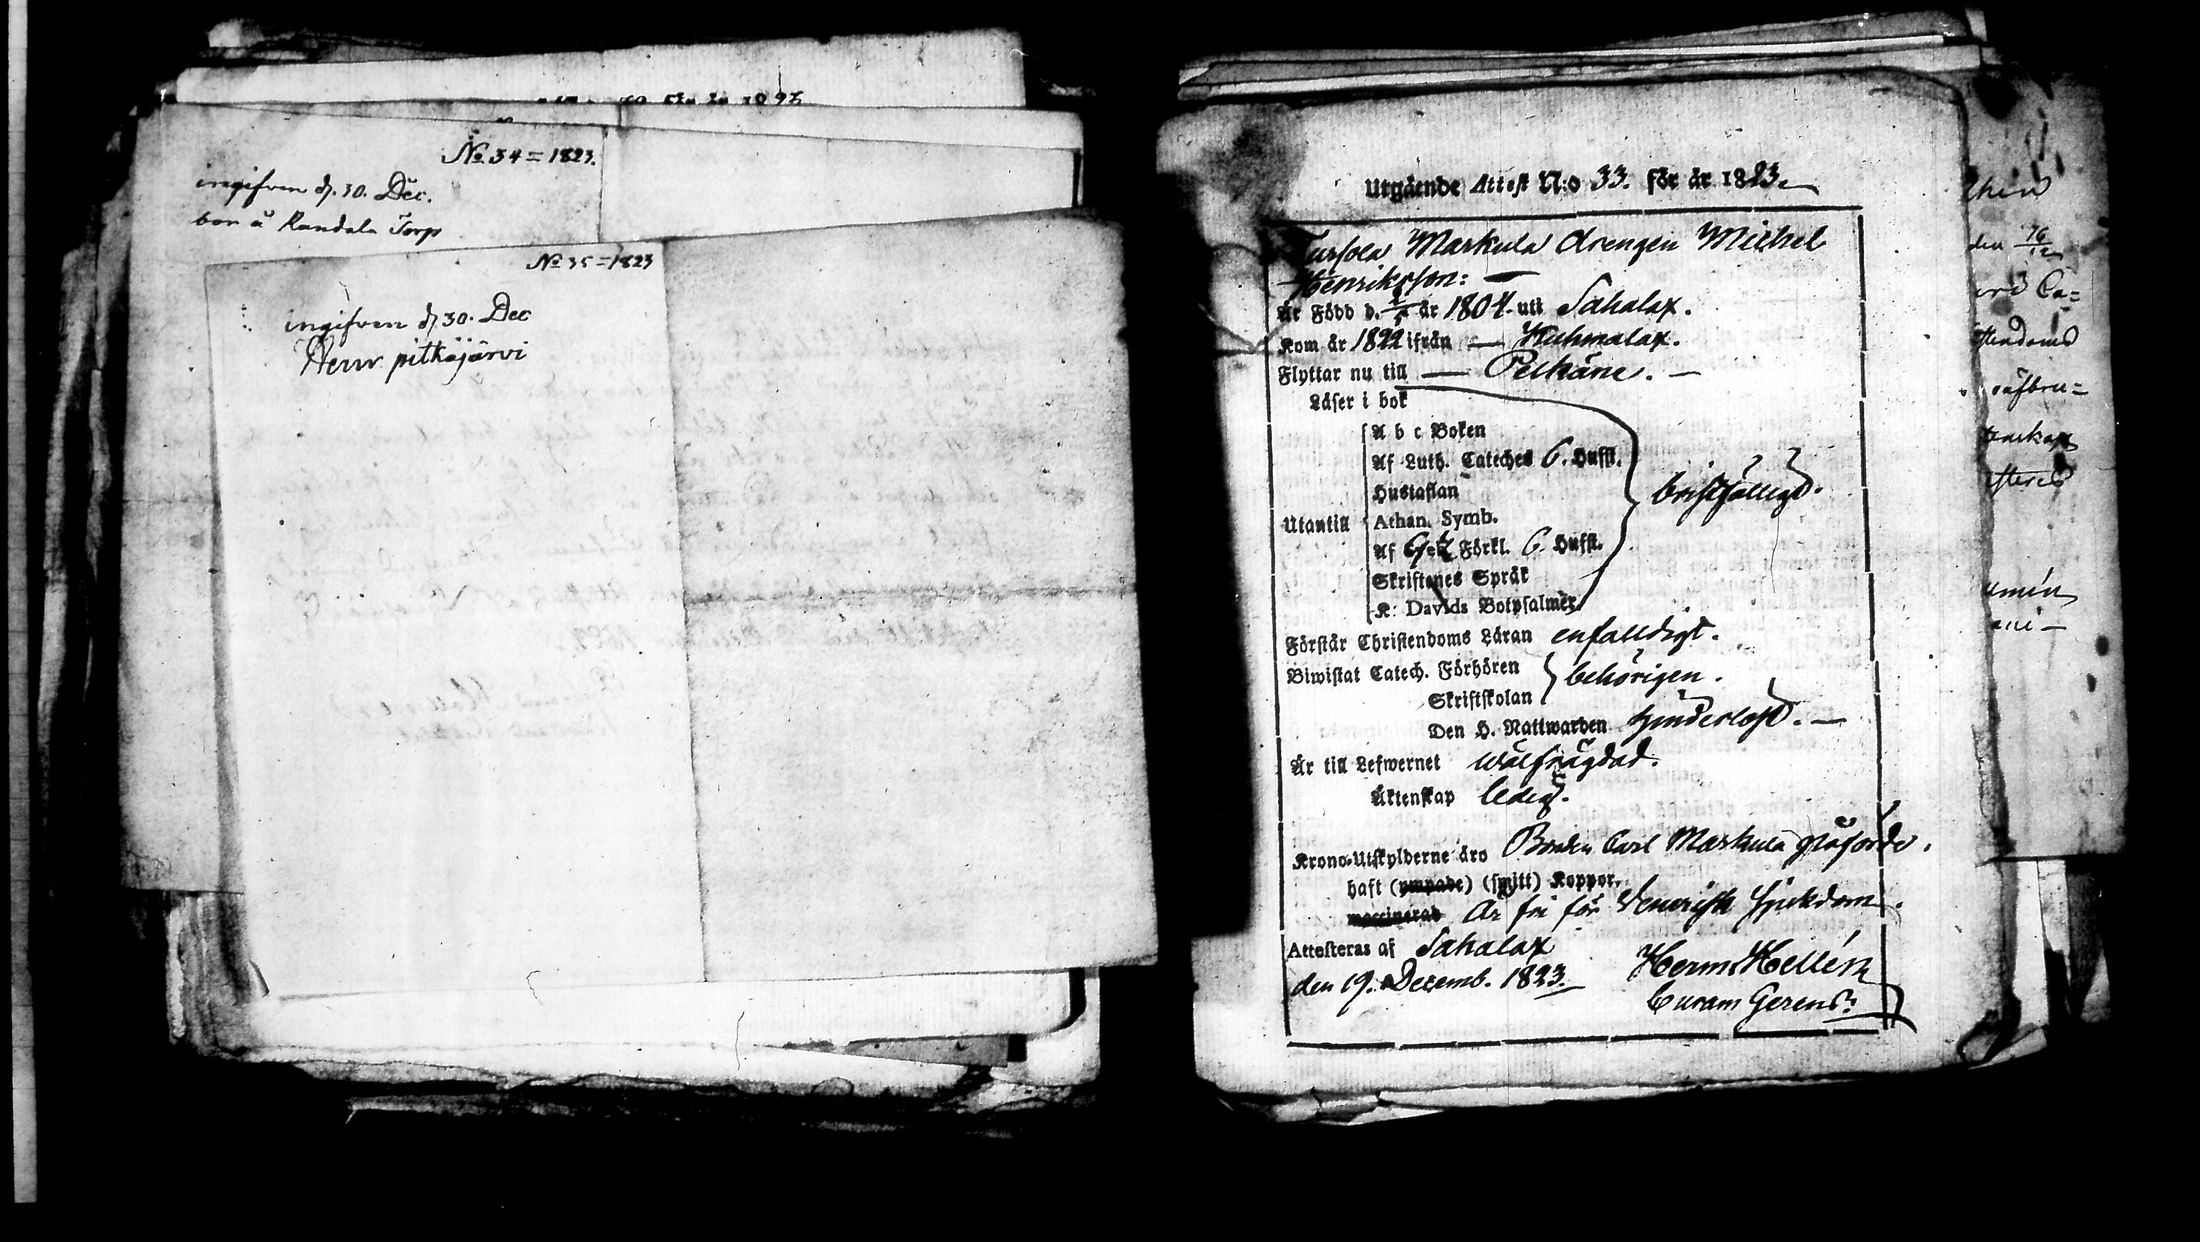 No 34 = 1823.
ingifven d. 30. Dec.
bor å Randala Torp
No 35 = 1823
ingifven d 30. Dec
Herrv pitkäjärvi
Utgående Attest N:o 33. för år 1823.
Markula drengen Michel
Henriksson:
Är Född d. år 1804. uti Sahalax.
Kom år 1822 ifrån — Kuhmalax.
Flyttar nu till — Pelkäne. —
Läser i bok
A b c Boken
Af Luth. Cateches 6. Hufst.
Hustaflan
bristfälligt.
Utantill
Athan. Symb.
Af Förkl. 6. Hufst.
Skriftenes Språk
K. Davids Botpsalmer
Förstår Christendoms Läran enfalldigt.
Biwistat Catech. Förhören
behörigen.
Skriftskolan
Den H. Nattwarden hinderlöst. —
Är till Lefwernet wälfrägdad.
Äktenskap ledig.
Krono-Utskylderne äro Bonden Carl Markula påförde.
haft (ympade) (smitt) Koppor.
waccinerad Är fri för Venerisk sjukdom.
Attesteras af Sahalax
den 19. Decemb. 1823.
Herm. Hellén
Curam Gerens.
den 16/12